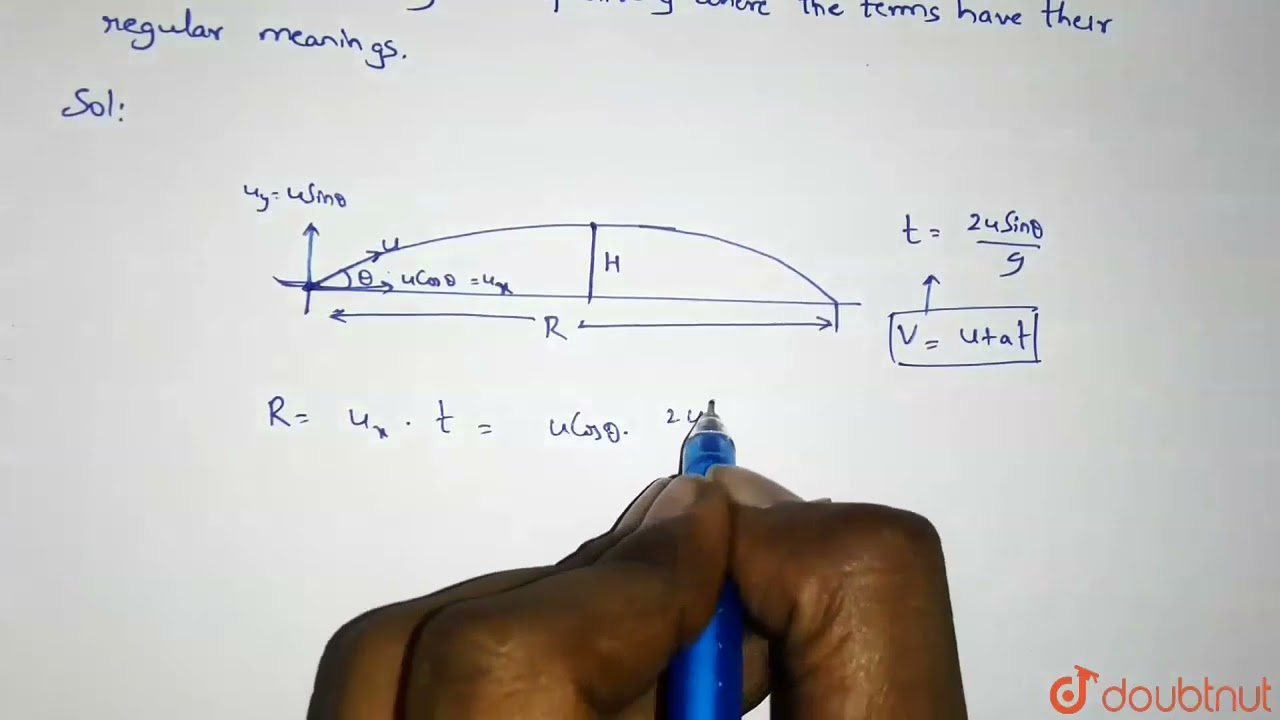 where the terms have their
regular meanings.
Sol:
uy = uSinθ
u
θ
uCosθ = ux
H
R
t = 2uSinθ / g
V = u+at
R = ux . t = uCosθ. 2u
doubtnut